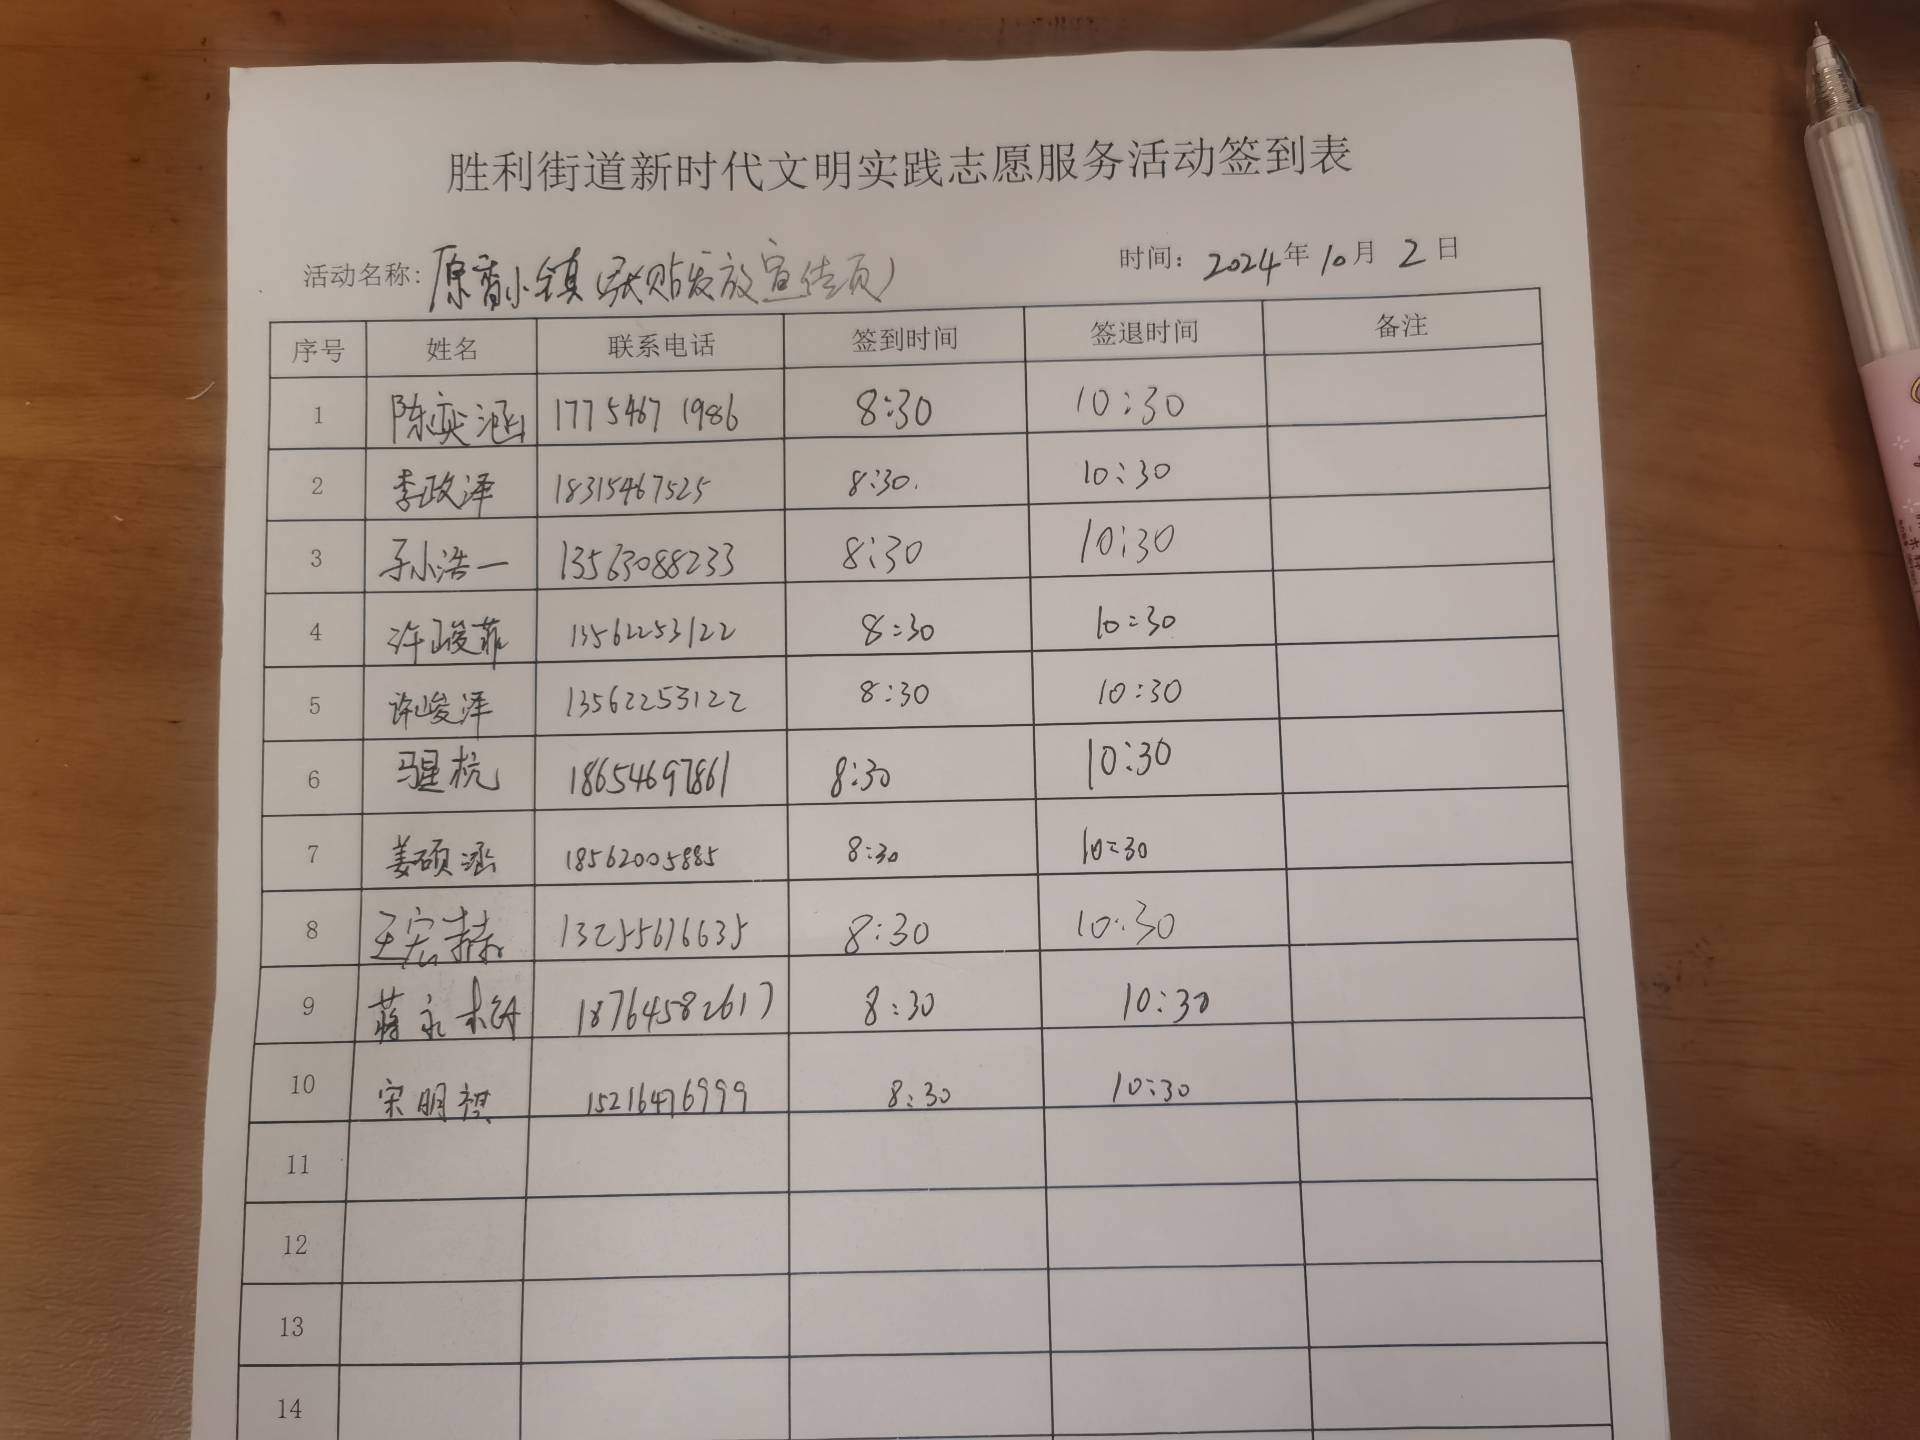 胜利街道新时代文明实践志愿服务活动签到表
活动名称: 原香小镇(张贴发放宣传页) 时间: 2024年10月2日
序号 姓名 联系电话 签到时间 签退时间 备注
1 陈奕涵 17754671986 8:30 10:30
2 李政泽 18315467525 8:30. 10:30
3 子小浩一 13563088233 8:30 10:30
4 许峻菲 13562253122 8:30 10:30
5 许峻泽 13562253122 8:30 10:30
6 马星杭 18654697861 8:30 10:30
7 姜硕涵 18562005885 8:30 10:30
8 王宏赫 13255616635 8:30 10:30
9 蒋永 18764582617 8:30 10:30
10 宋明祺 15216476999 8:30 10:30
11
12
13
14